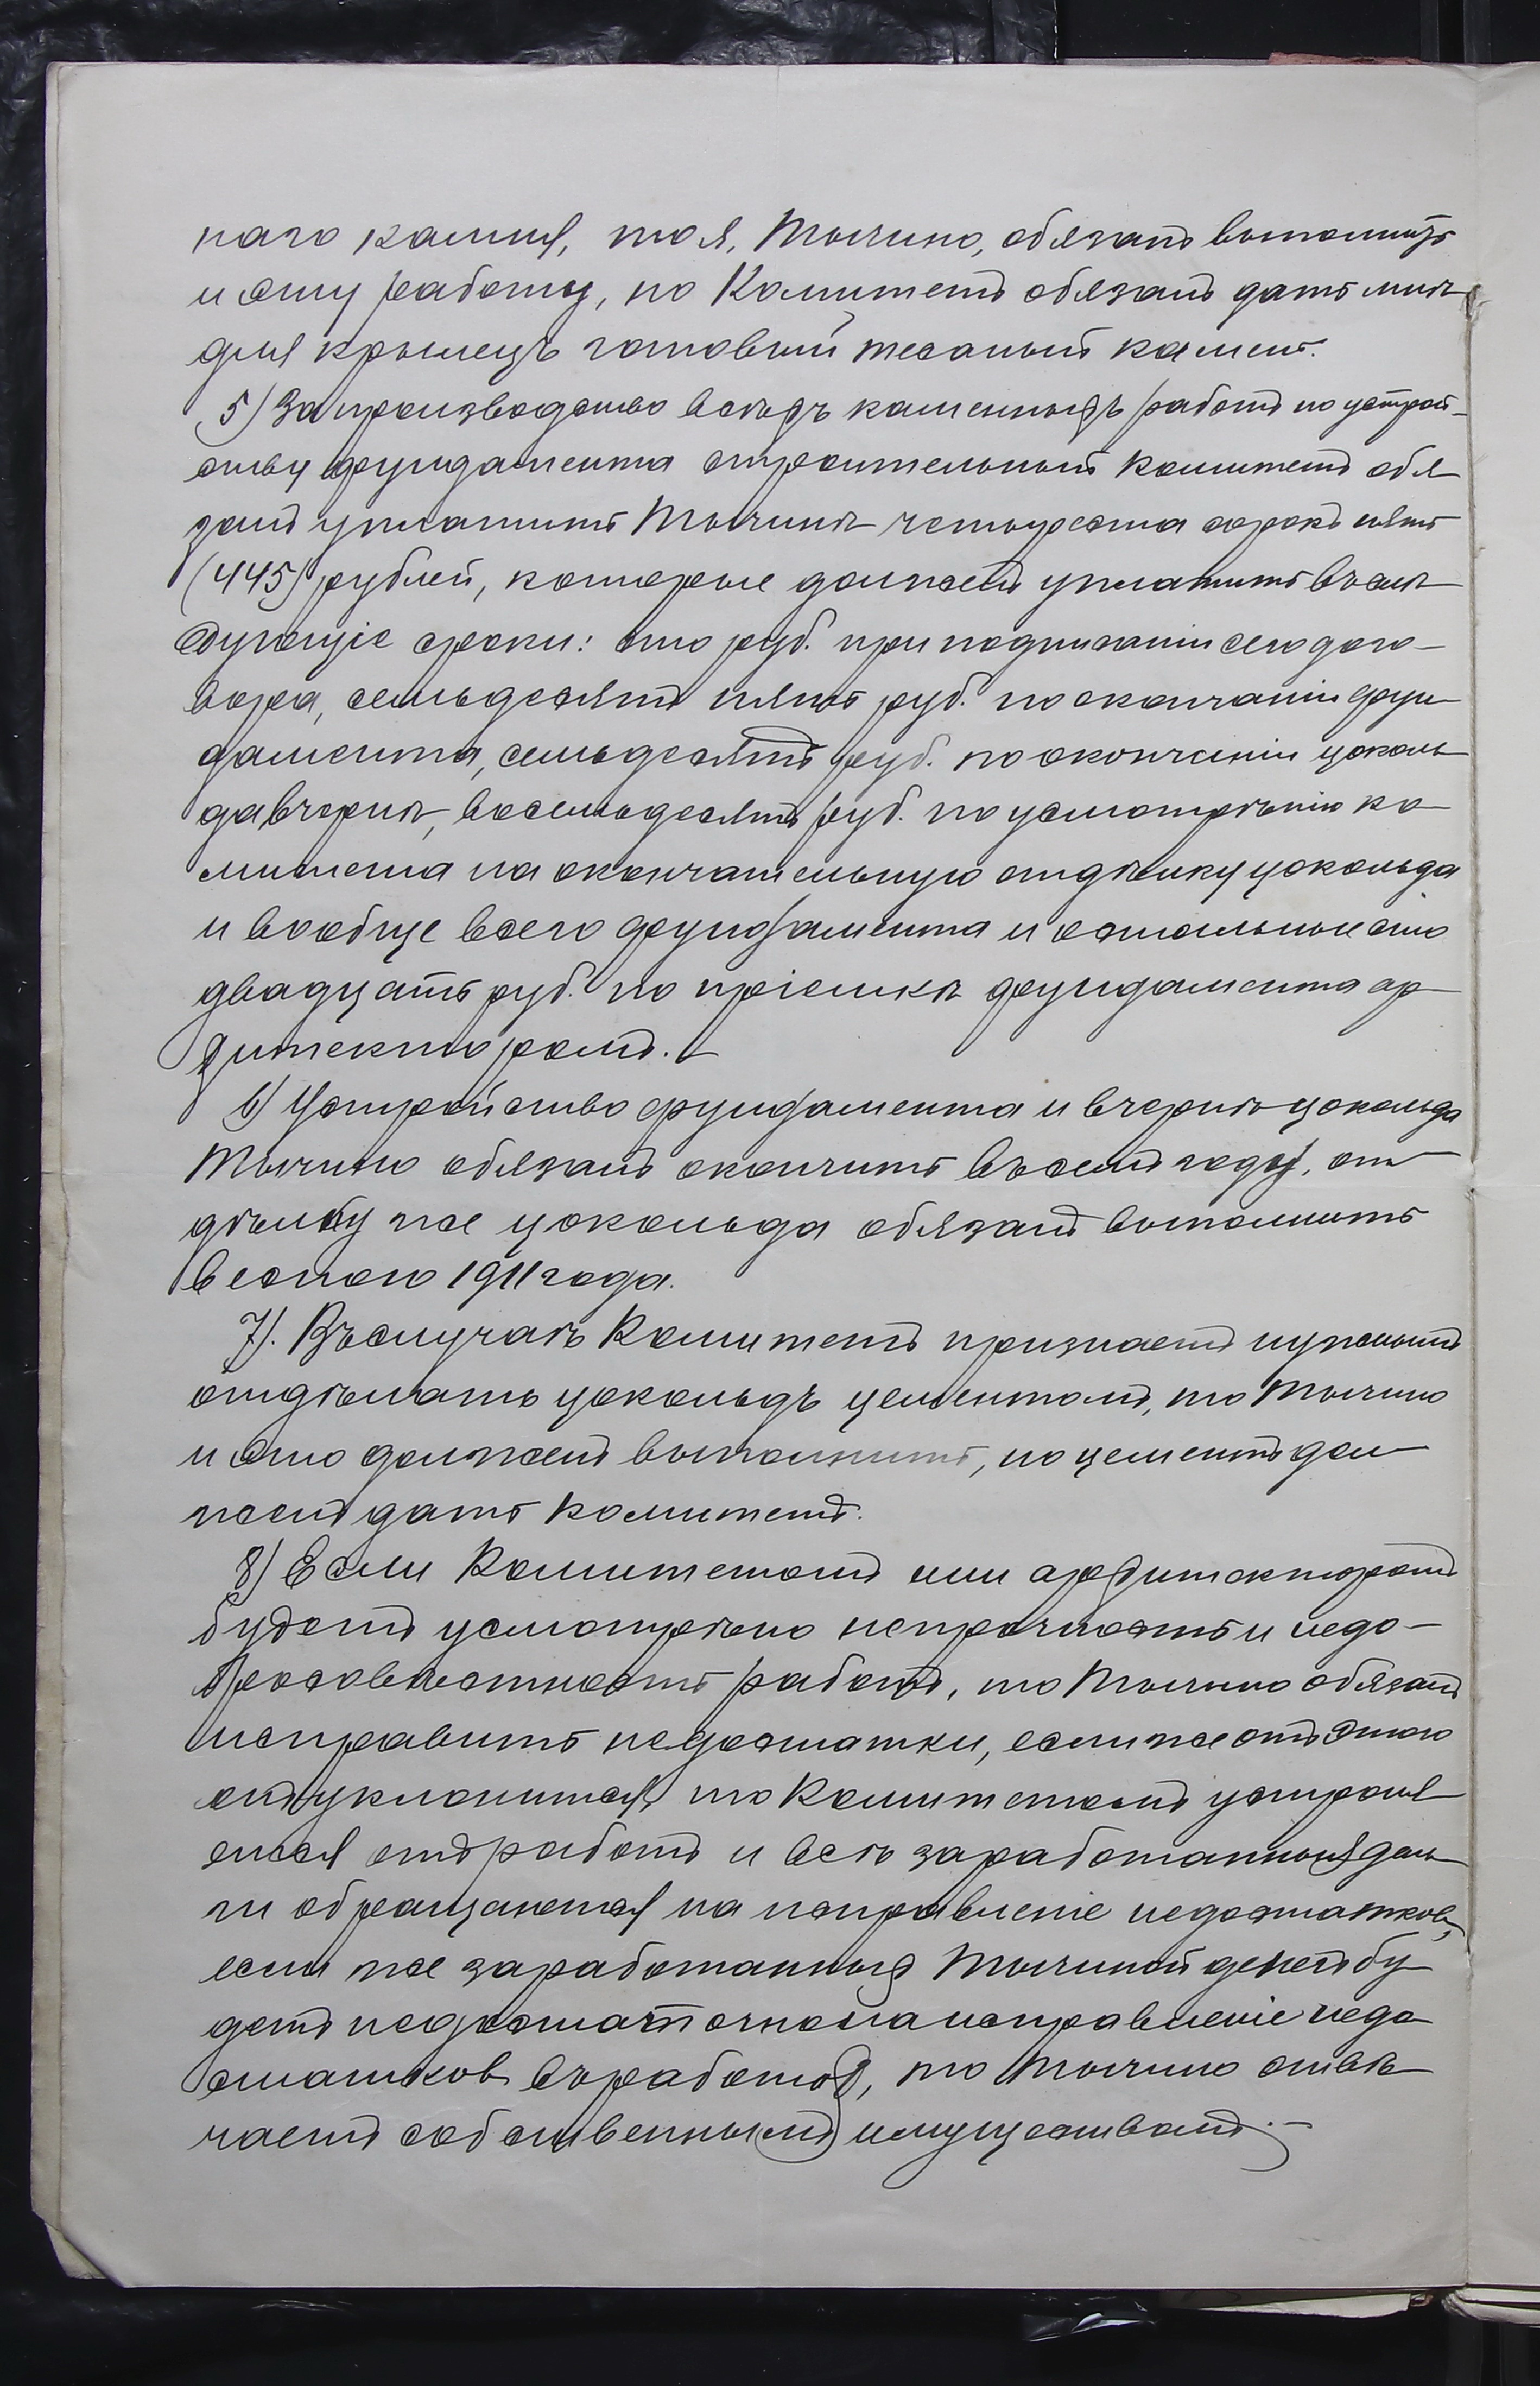 наго камня, то я, Тычино, обязанъ выполнить
и эту работу, но Комитетъ обязанъ дать мнѣ
для крылецъ готовый тесаный камень.
5) За производство всѣхъ каменныхъ работъ по устрой-
ству фундамента строительный комитетъ обя-
занъ уплатить Тычинѣ четыреста сорокъ пять
(445) рублей, которые долженъ уплатить въ слѣ-
дующіе сроки: сто руб. при подписаніи сего дого-
вора, семьдесятъ пять руб. по окончаніи фун-
дамента, семьдесятъ руб. по окончаніи цоколь-
да вчернѣ, восемьдесятъ руб. по усмотрѣнію ко-
митета на окончательную отдѣлку цокольда
и вообще всего фундамента и остальные сто
двадцать руб. по пріемкѣ фундамента ар-
хитекторомъ.—
6) Устройство фундамента и вчернѣ цокольда
Тычино обязанъ окончить въ семъ году, от-
дѣлку же цокольда обязанъ выполнить
весною 1911 года.
7). Въ случаѣ Комитетъ признаетъ нужнымъ
отдѣлать цокольдъ цементомъ, то Тычино
и это долженъ выполнить, но цементъ дол-
женъ дать комитетъ.
8) Если Комитетомъ или архитекторомъ
будетъ усмотрѣно непрочность и недо-
бросовестность работъ, то Тычино обязанъ
исправить недостатки, если же отъ этого
онъ уклонится, то Комитетомъ устраня-
ется отъ работъ и всѣ заработанныя день-
ги обращаются на исправленіе недостатковъ,
если же заработанныхъ Тычиной денегъ бу-
детъ недостаточно на исправленіе недо-
статковъ въ работахъ, то Тычино отвѣ-
чаетъ собственнымъ имуществомъ.—